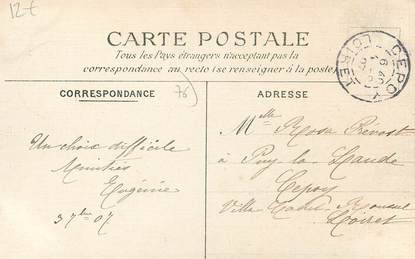 12-€
CARTE POSTALE
Tous les Pays étrangers n'acceptant pas la
correspondance au recto (se renseigner à la poste)
CEPOY
LOIRET
CORRESPONDANCE
ADRESSE
Un choix difficile
Eugénie
3 7bre 07
Melle Rose Prévost
à Puy la Laude
Cepoy
Villa
Loiret